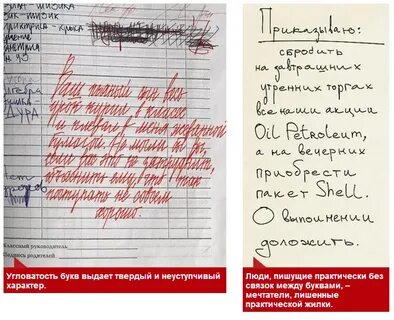 Ваш пьяный сын весь
урок курил в классе.
плевал в меня жеваной
бумагой. Не могли бы вы,
если вас это не затруднит,
объяснить ему, что так
поступать не совсем
хорошо.
ДУРА
Классный руководитель
Подпись родителей
Угловатость букв выдает твердый и неуступчивый
характер.
Приказываю:
сбродить
на завтрашних
утренних торгах
все наши акции
Oil Petroleum,
а на вечерних
приобрести
пакет Shell.
О выполнении
доложить.
Люди, пишущие практически без
связок между буквами, –
мечтатели, лишенные
практической жилки.